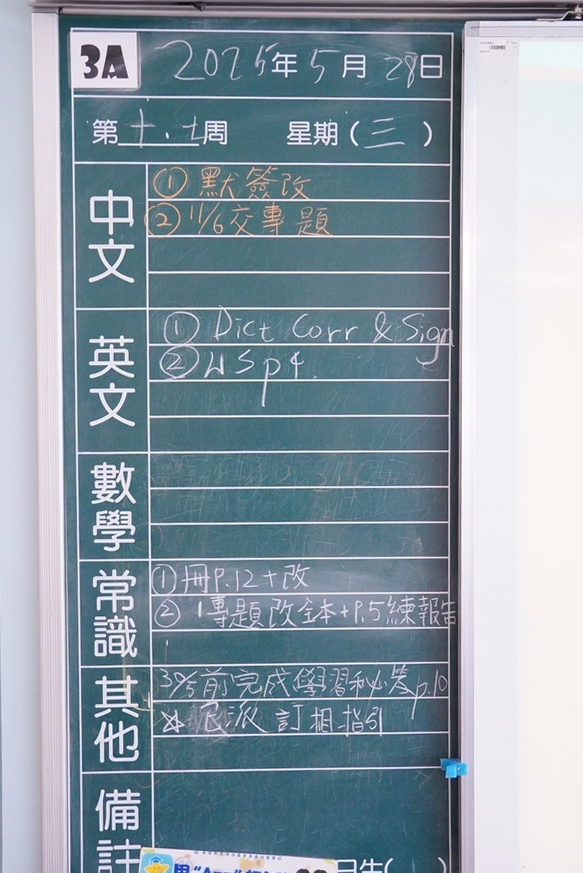 3A 2025年5月28日
第十.七周 星期(三)
中文
① 默簽改
② 11/6交專題
英文
① Dict Corr & Sign
② WS p4.
數學
常識
① 冊P.12+改
② 1專題改全本+P.5練報告
其他
30/5前完成學習秘笈p.10
☆ 已派訂相指引
備註